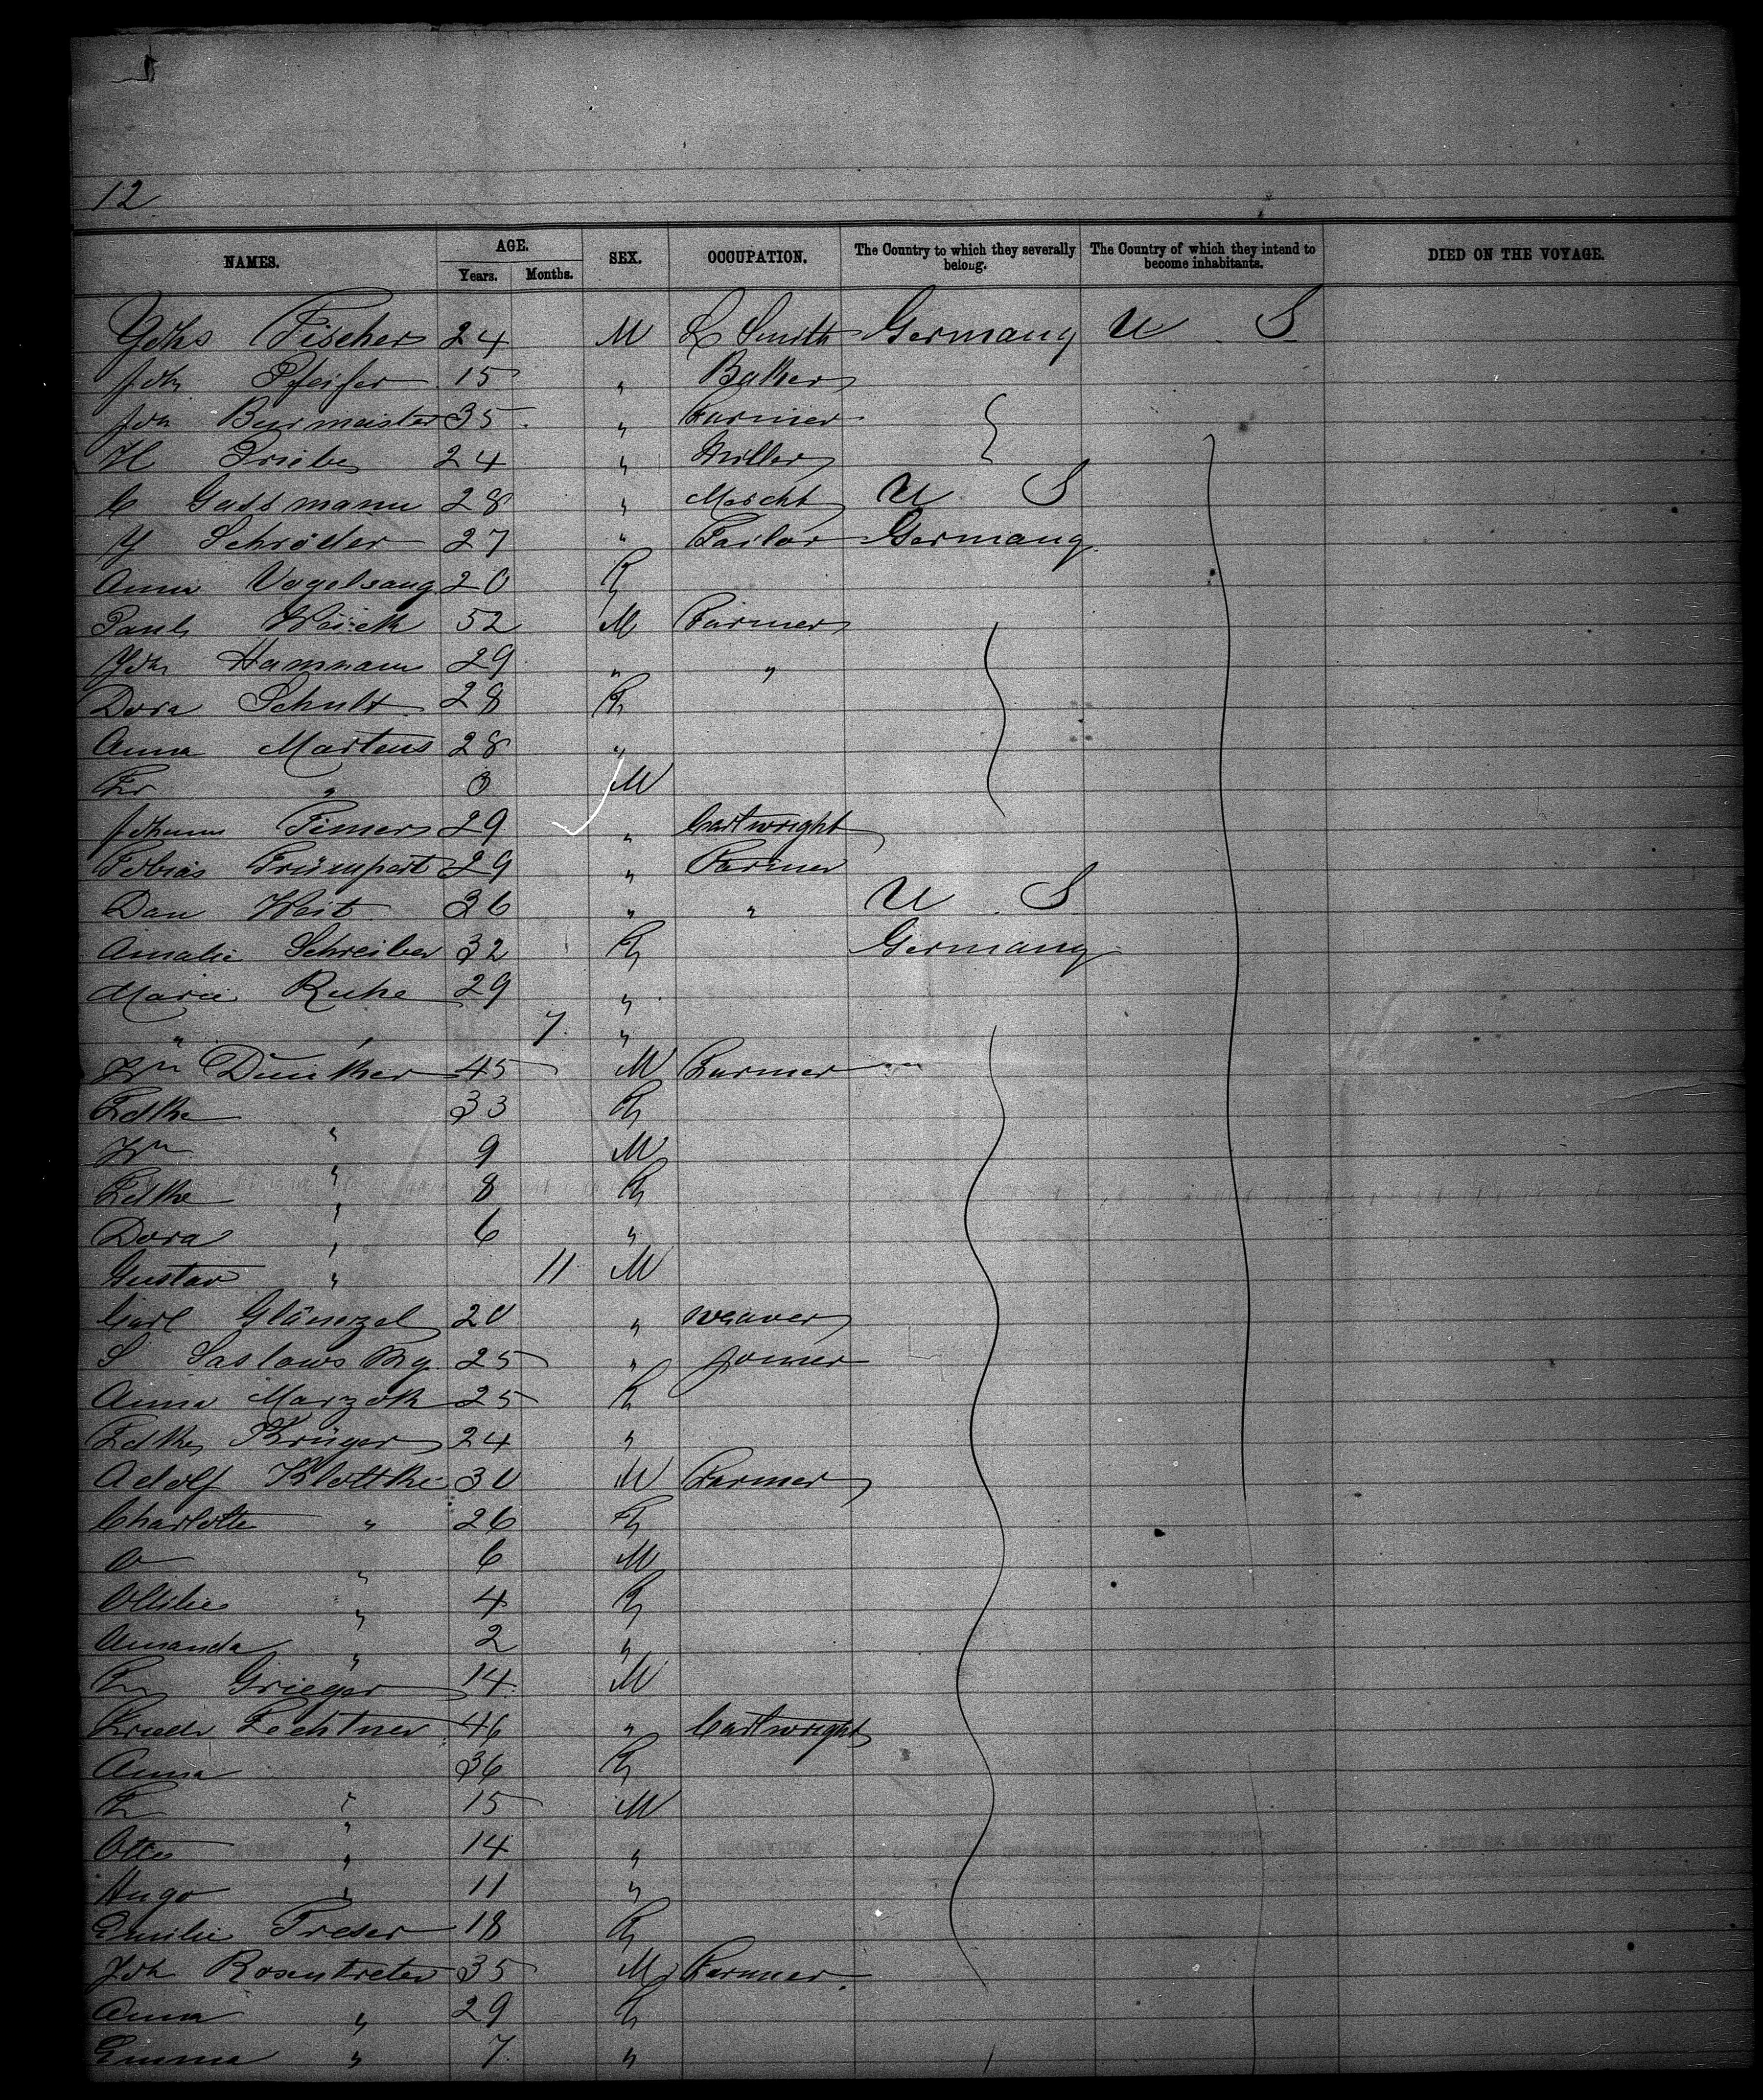 12
NAMES. AGE. Years. Months. SEX. OCCUPATION. The Country to which they severally belong. The Country of which they intend to become inhabitants. DIED ON THE VOYAGE.
Johs Fischer 24 M L Smith Germany U S
Joh Pfeifer 15 " Baker
Joh Burmeister 35 " Farmer
H Priebe 24 " Miller
C Gassmann 28 " Mercht U S
J Schröder 27 " Tailor Germany
Anna Vogelsang 20 F
Paul 52 M Farmer
Joh Hammann 29 " "
Dora Schult 28 F
Anna Martens 28 "
Fr " 3 M
Johann Timers 29 " Cartwright
Tobias Trümpert 29 " Farmer
Dan Weit 36 " " U S
Amalie Schreiber 32 F Germany
Marie Ruhe 29 "
" " 7 "
Hrn Dunker 45 M Farmer
Fdke " 33 F
Hrn " 9 M
Fdke " 8 F
Dora " 6 "
Gustav " 11 M
Carl Glänzel 20 " weaver
S Saslowsky 25 " joiner
Anna Marzok 25 F
Fdke Krüger 24 "
Adolf Klottke 30 M Farmer
Charlotte " 26 F
O " 6 M
Ottilie " 4 F
Amanda " 2 "
Fr Grieger 14 M
Friedr Fechtner 46 " Cartwright
Anna " 36 F
Fr " 15 M
Otto " 14 "
Hugo " 11 "
Emilie Treser 18 F
Joh Rosentreter 35 M Farmer
Anna " 29 F
Emma " 7 "